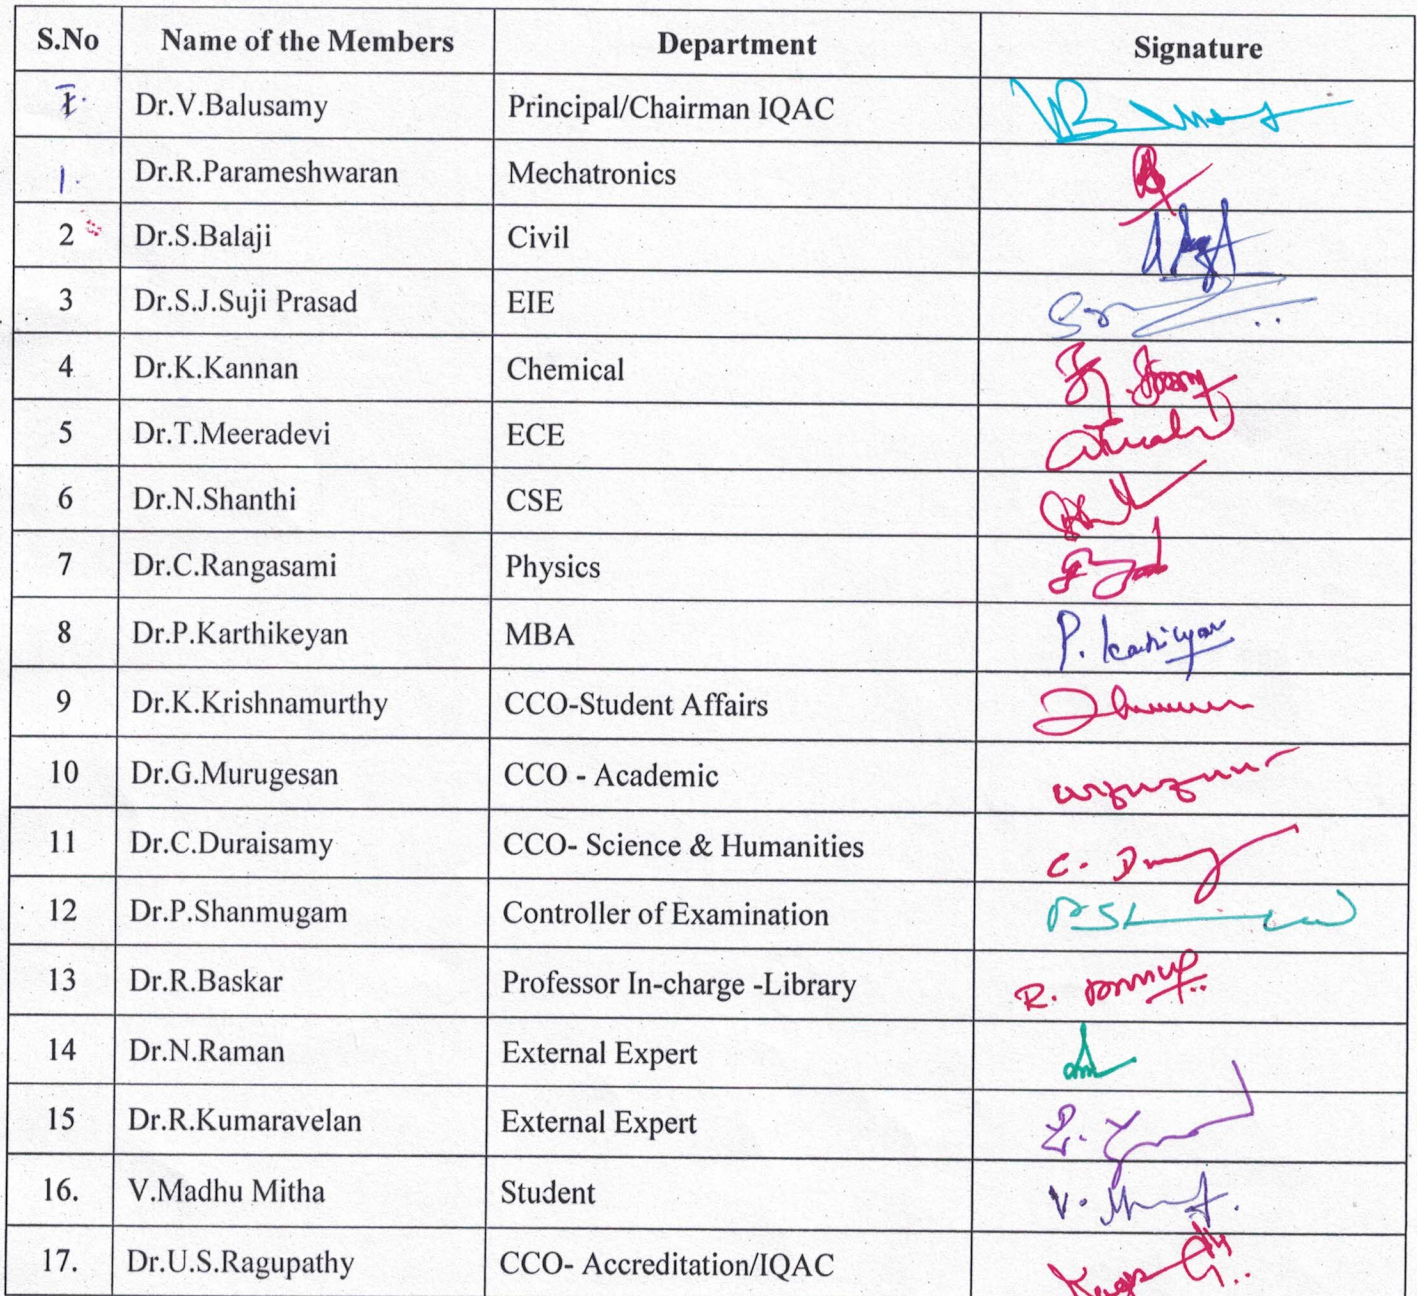 S.No Name of the Members Department Signature
Dr.V.Balusamy Principal/Chairman IQAC
1. Dr.R.Parameshwaran Mechatronics
2 Dr.S.Balaji Civil
3 Dr.S.J.Suji Prasad EIE
4 Dr.K.Kannan Chemical
5 Dr.T.Meeradevi ECE
6 Dr.N.Shanthi CSE
7 Dr.C.Rangasami Physics
8 Dr.P.Karthikeyan MBA
9 Dr.K.Krishnamurthy CCO-Student Affairs
10 Dr.G.Murugesan CCO - Academic
11 Dr.C.Duraisamy CCO- Science & Humanities
12 Dr.P.Shanmugam Controller of Examination
13 Dr.R.Baskar Professor In-charge -Library
14 Dr.N.Raman External Expert
15 Dr.R.Kumaravelan External Expert
16. V.Madhu Mitha Student
17. Dr.U.S.Ragupathy CCO- Accreditation/IQAC